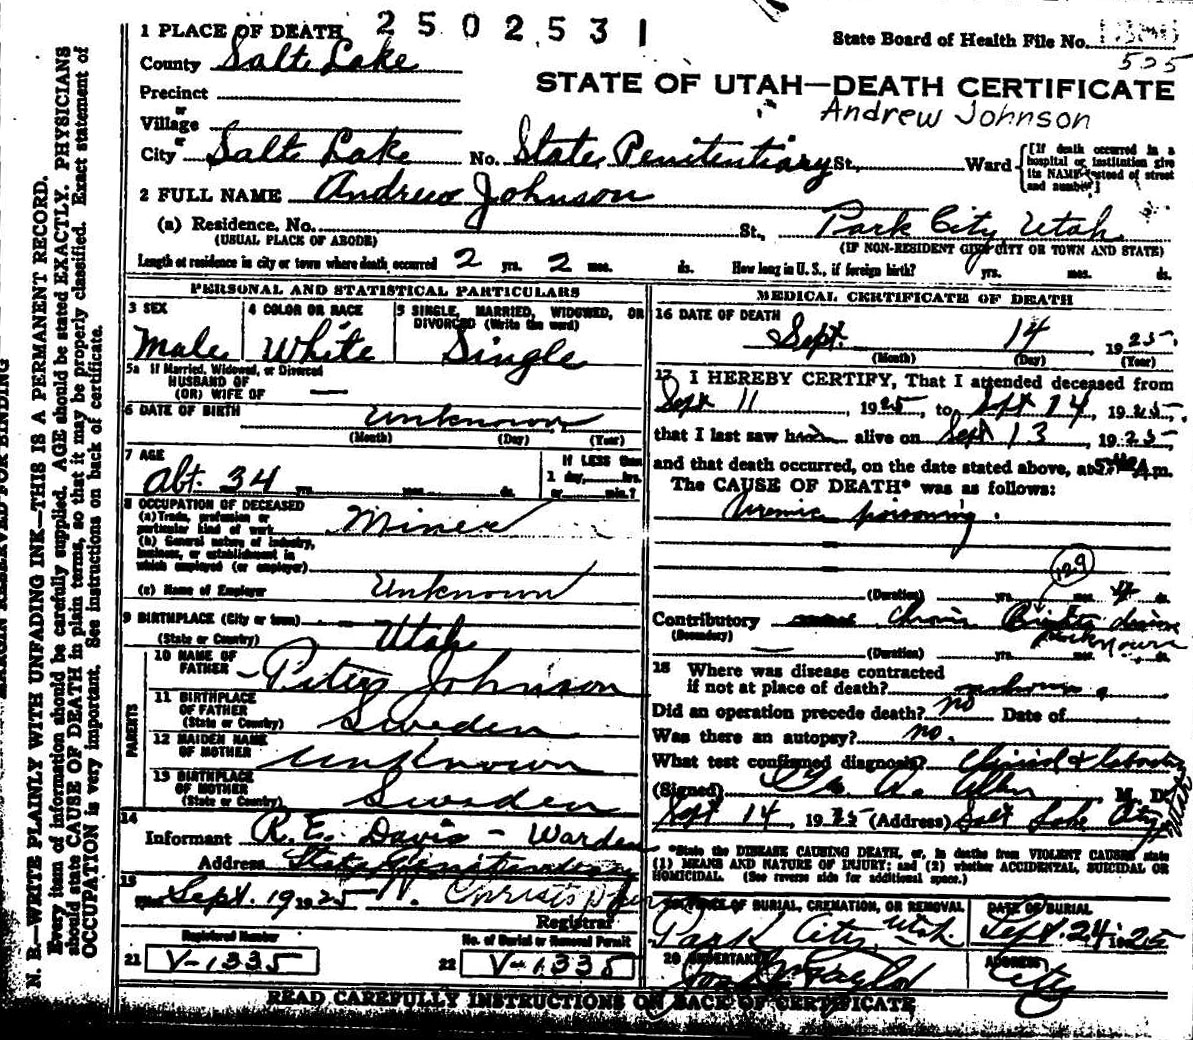 2502531
1 PLACE OF DEATH
State Board of Health File No.
525
County Salt Lake
STATE OF UTAH—DEATH CERTIFICATE
Precinct
Andrew Johnson
or
Village
or
City Salt Lake No. State Penitentiary St., Ward
[If death occurred in a
hospital or institution give
its NAME instead of street
and number]
2 FULL NAME Andrew Johnson
(a) Residence. No. St., Park City Utah
(USUAL PLACE OF ABODE) (IF NON-RESIDENT GIVE CITY OR TOWN AND STATE)
Length of residence in city or town where death occurred 2 yrs. 2 mos. ds. How long in U. S., if foreign birth? yrs. mos. ds.
PERSONAL AND STATISTICAL PARTICULARS
3 SEX
Male
4 COLOR OR RACE
White
5 SINGLE, MARRIED, WIDOWED, OR
DIVORCED (Write the word)
Single
5a If Married, Widowed, or Divorced
HUSBAND OF
(OR) WIFE OF —
6 DATE OF BIRTH Unknown
(Month) (Day) (Year)
7 AGE
Abt. 34 yrs. mos. ds.
IF LESS than
1 day, hrs.
or min.?
8 OCCUPATION OF DECEASED
(a) Trade, profession or
particular kind of work Miner
(b) General nature of industry,
business, or establishment in
which employed (or employer)
(c) Name of Employer Unknown
9 BIRTHPLACE (City or town)
(State or Country) Utah
PARENTS
10 NAME OF
FATHER Peter Johnson
11 BIRTHPLACE
OF FATHER
(State or Country) Sweden
12 MAIDEN NAME
OF MOTHER Unknown
13 BIRTHPLACE
OF MOTHER
(State or Country) Sweden
14
Informant R. E. Davis - Warden
Address State Penitentiary
15
Sept. 19 1925
Registrar
Registered Number
21 V-1335
No. of Burial or Removal Permit
22 V-1335
MEDICAL CERTIFICATE OF DEATH
16 DATE OF DEATH
Sept. 14 1925
(Month) (Day) (Year)
17 I HEREBY CERTIFY, That I attended deceased from
Sept 11, 1925, to Sept 14, 1925,
that I last saw him alive on Sept 13 1925
and that death occurred, on the date stated above, at m.
The CAUSE OF DEATH* was as follows:
Uremic poisoning.
129
(Duration) yrs. mos. ds.
Contributory Chronic Brights disease
(Secondary) unknown
(Duration) yrs. mos. ds.
18 Where was disease contracted
if not at place of death? unknown
Did an operation precede death? no Date of
Was there an autopsy? no.
What test confirmed diagnosis? Clinical & laboratory
(Signed) A. Allen M. D.
Sept 14, 1925 (Address) Salt Lake City Utah
*State the DISEASE CAUSING DEATH, or, in deaths from VIOLENT CAUSES state
(1) MEANS AND NATURE OF INJURY; and (2) whether ACCIDENTAL, SUICIDAL OR
HOMICIDAL. (See reverse side for additional space.)
PLACE OF BURIAL, CREMATION, OR REMOVAL
Park City, Utah
DATE OF BURIAL
Sept. 24, 1925
20 UNDERTAKER
ADDRESS
City
READ CAREFULLY INSTRUCTIONS ON BACK OF CERTIFICATE
MARGIN RESERVED FOR BINDING
N. B.—WRITE PLAINLY WITH UNFADING INK—THIS IS A PERMANENT RECORD.
Every item of information should be carefully supplied. AGE should be stated EXACTLY. PHYSICIANS
should state CAUSE OF DEATH in plain terms, so that it may be properly classified. Exact statement of
OCCUPATION is very important. See instructions on back of certificate.